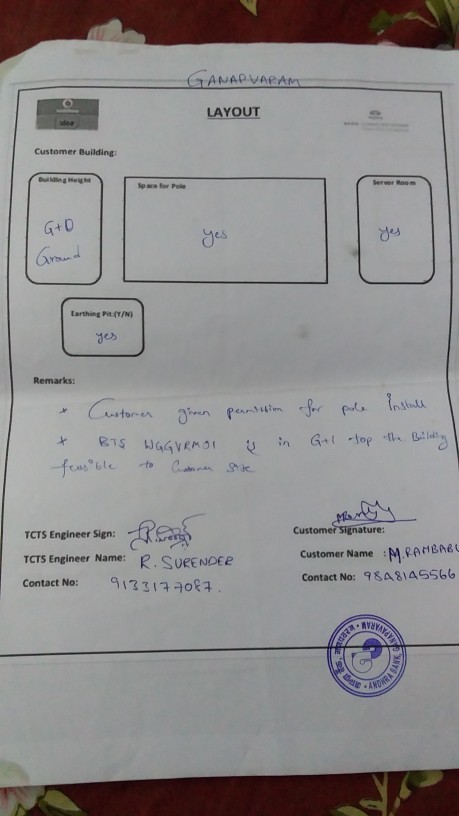 GANAPVARAM
vodafone
idea
LAYOUT
TATA
Customer Building:
Building Height
G+0
Ground
Space for Pole
yes
Server Room
yes
Earthing Pit:(Y/N)
yes
Remarks:
* Customer given permission for pole Install
* BTS WGGVRM01 is in G+1 top the Building
feasible to Customer site
TCTS Engineer Sign:
TCTS Engineer Name: R. SURENDER
Contact No: 9133177087.
Customer Signature:
Customer Name : M.RAMBABU
Contact No: 9848145566
ANDHRA BANK, GANAPAVARAM